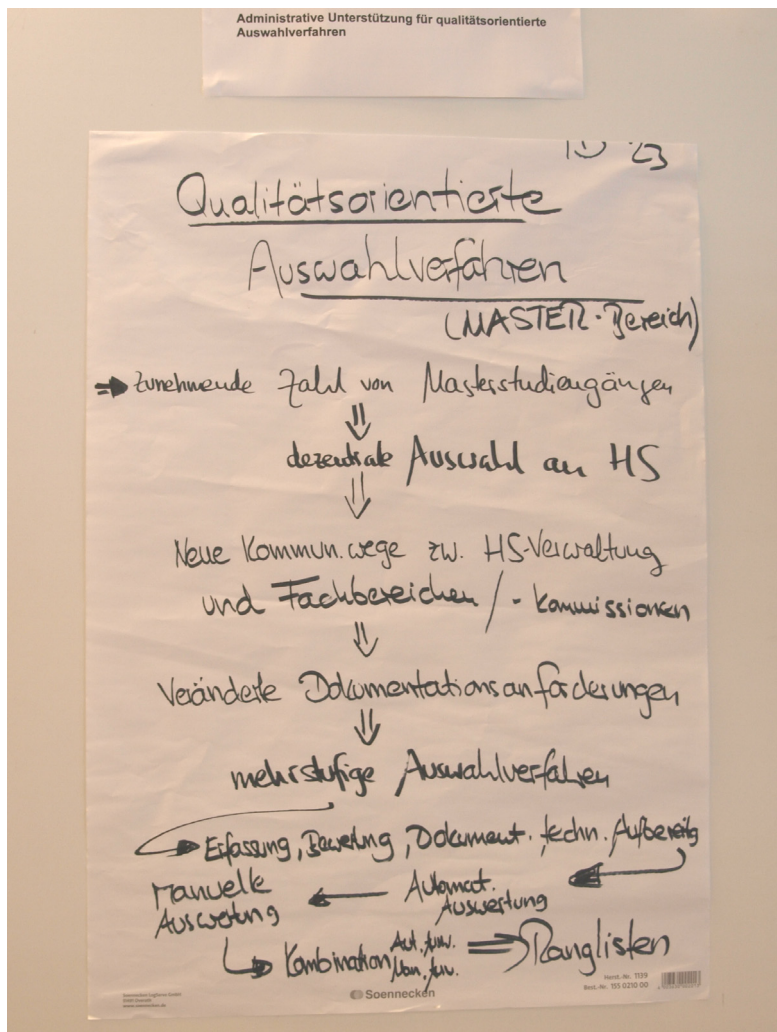 Administrative Unterstützung für qualitätsorientierte
Auswahlverfahren
23
Qualitätsorientierte
Auswahlverfahren
(MASTER-Bereich)
→ Zunehmende Zahl von Masterstudiengängen
⇓
dezentrale Auswahl an HS
⇓
Neue Kommun.wege zw. HS-Verwaltung
und Fachbereichen / -kommissionen
⇓
Veränderte Dokumentationsanforderungen
⇓
mehrstufige Auswahlverfahren
→ Erfassung, Bewertung, Dokument. techn. Aufbereitg
Manuelle ← Automat. ←
Auswertung Auswertung
→ Kombination Aut. Man. ⇒ Ranglisten
Soennecken LogServe GmbH
51491 Overath
www.soennecken.de
Soennecken
Herst.-Nr. 1139
Best.-Nr. 155 0210 00